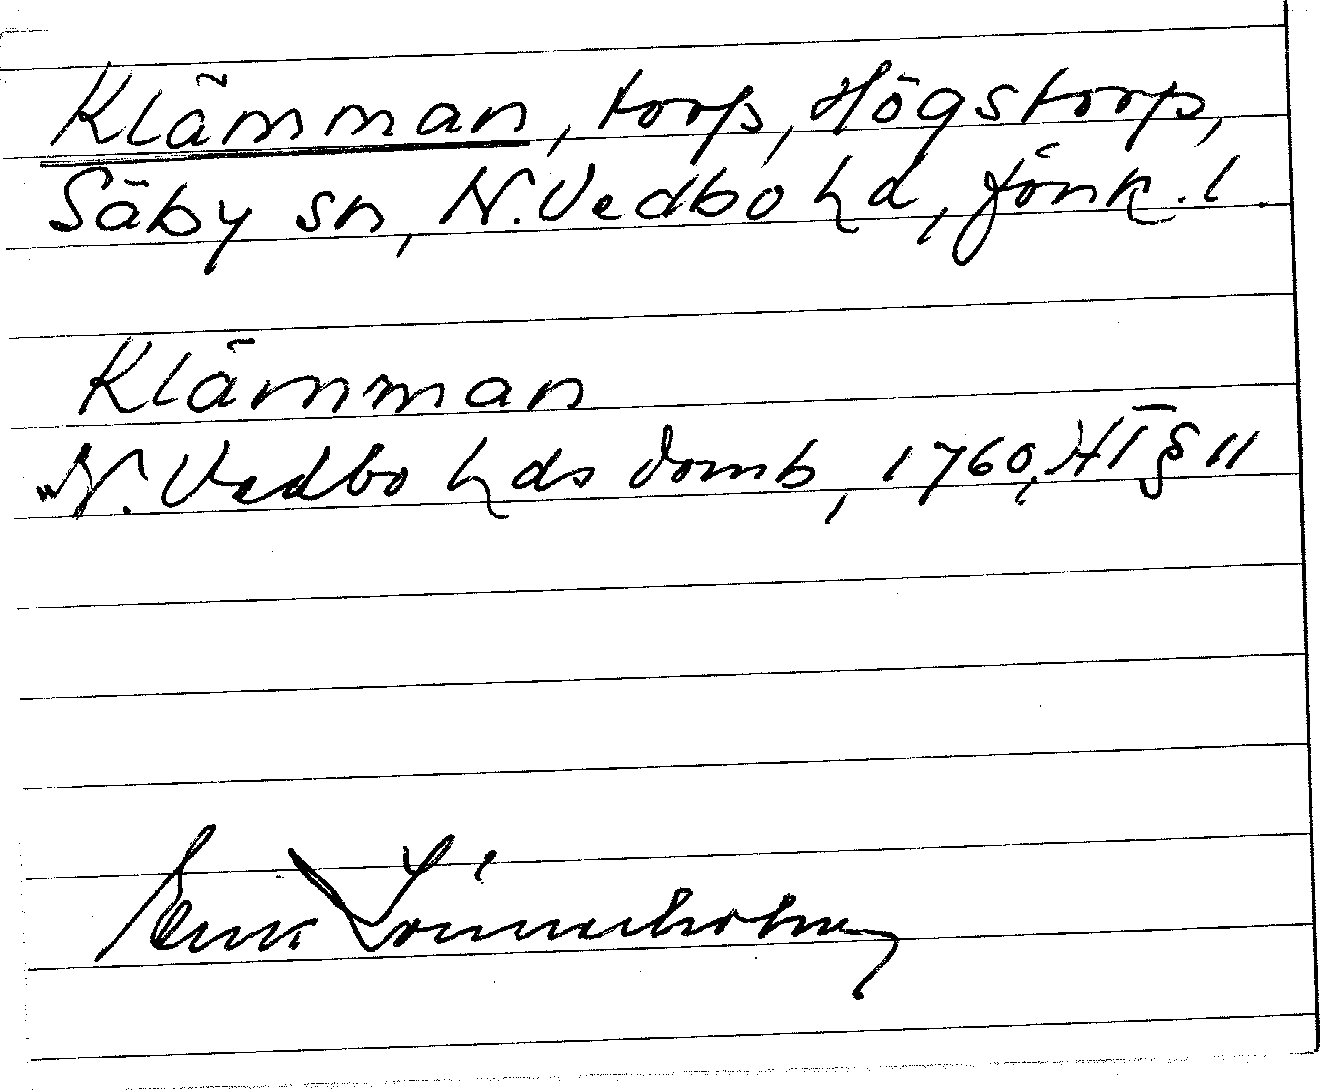 Klämman, torp, Högstorp,
Säby sn, N. Vedbo hd, Jönk. l.
Klämman
N. Vedbo hds domb, 1760, HT § 11
Erik Lönnerholm